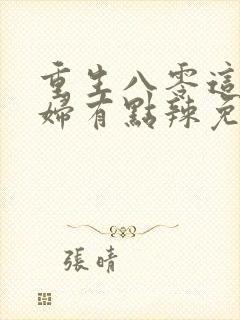 重生八零這
婦有點辣免
張晴